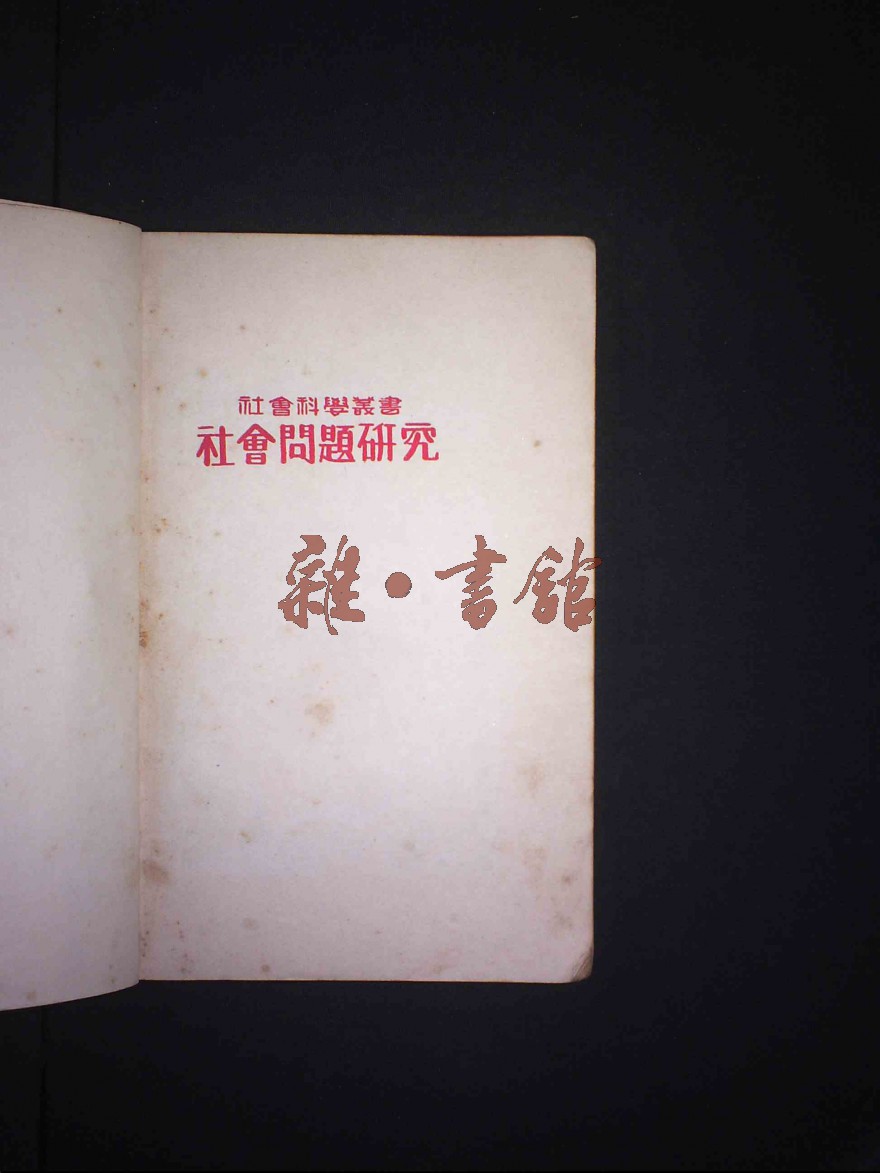 社會科學叢書
社會問題研究
雜·書館